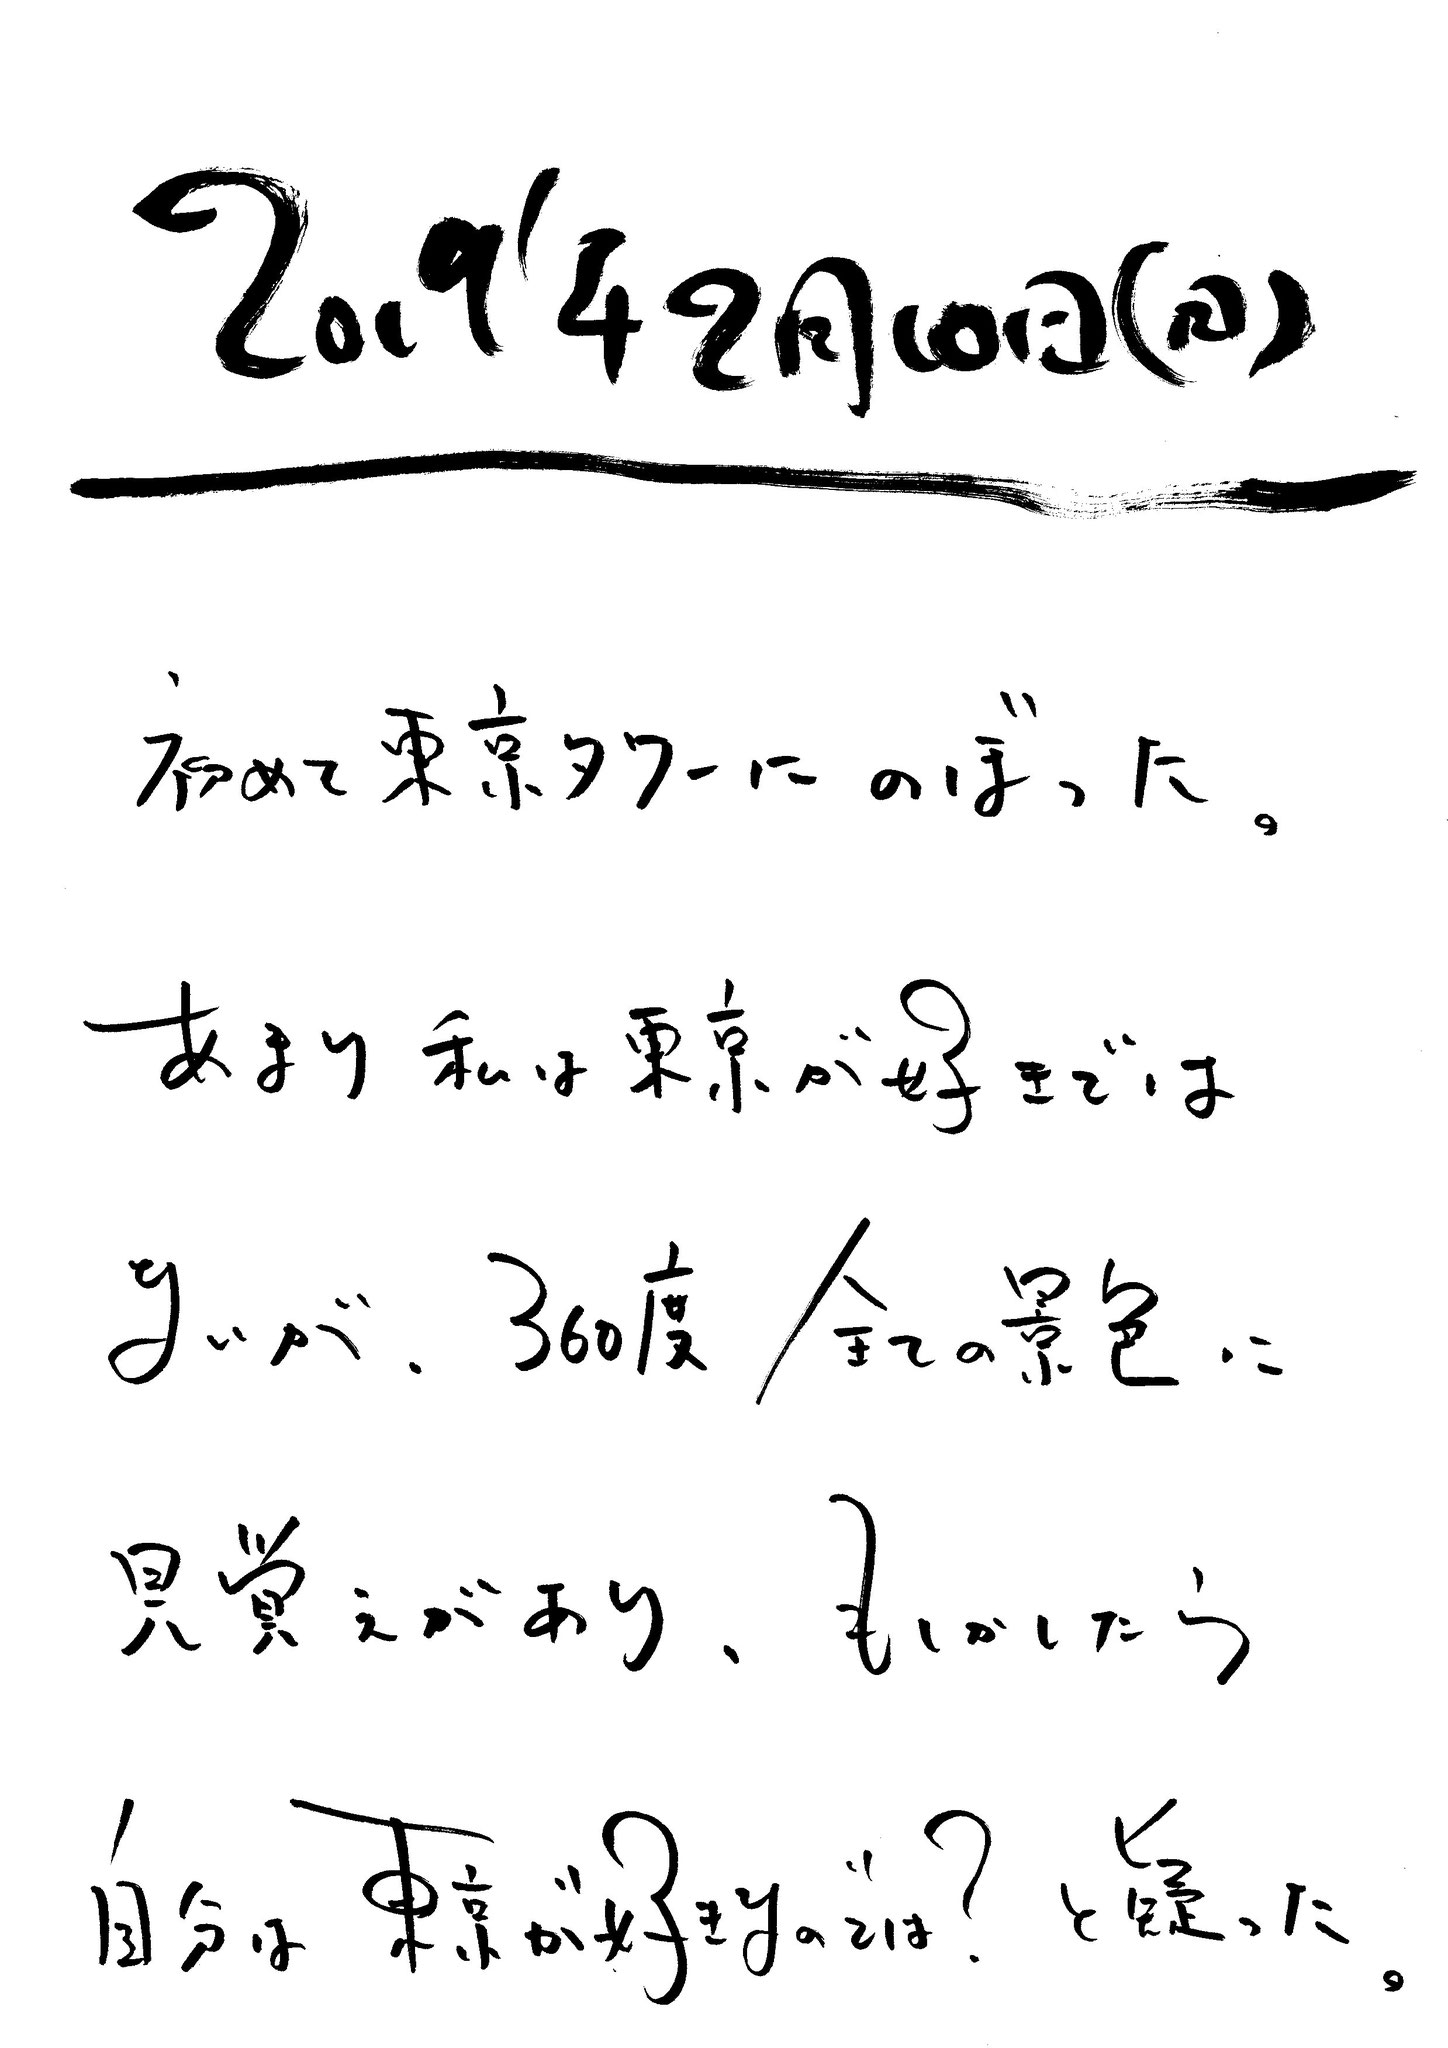 2019年2月10日(日)
初めて東京タワーにのぼった。
あまり私は東京が好きでは
ないが、360度全ての景色に
見覚えがあり、もしかしたら
自分は東京が好きなのでは?と疑った。